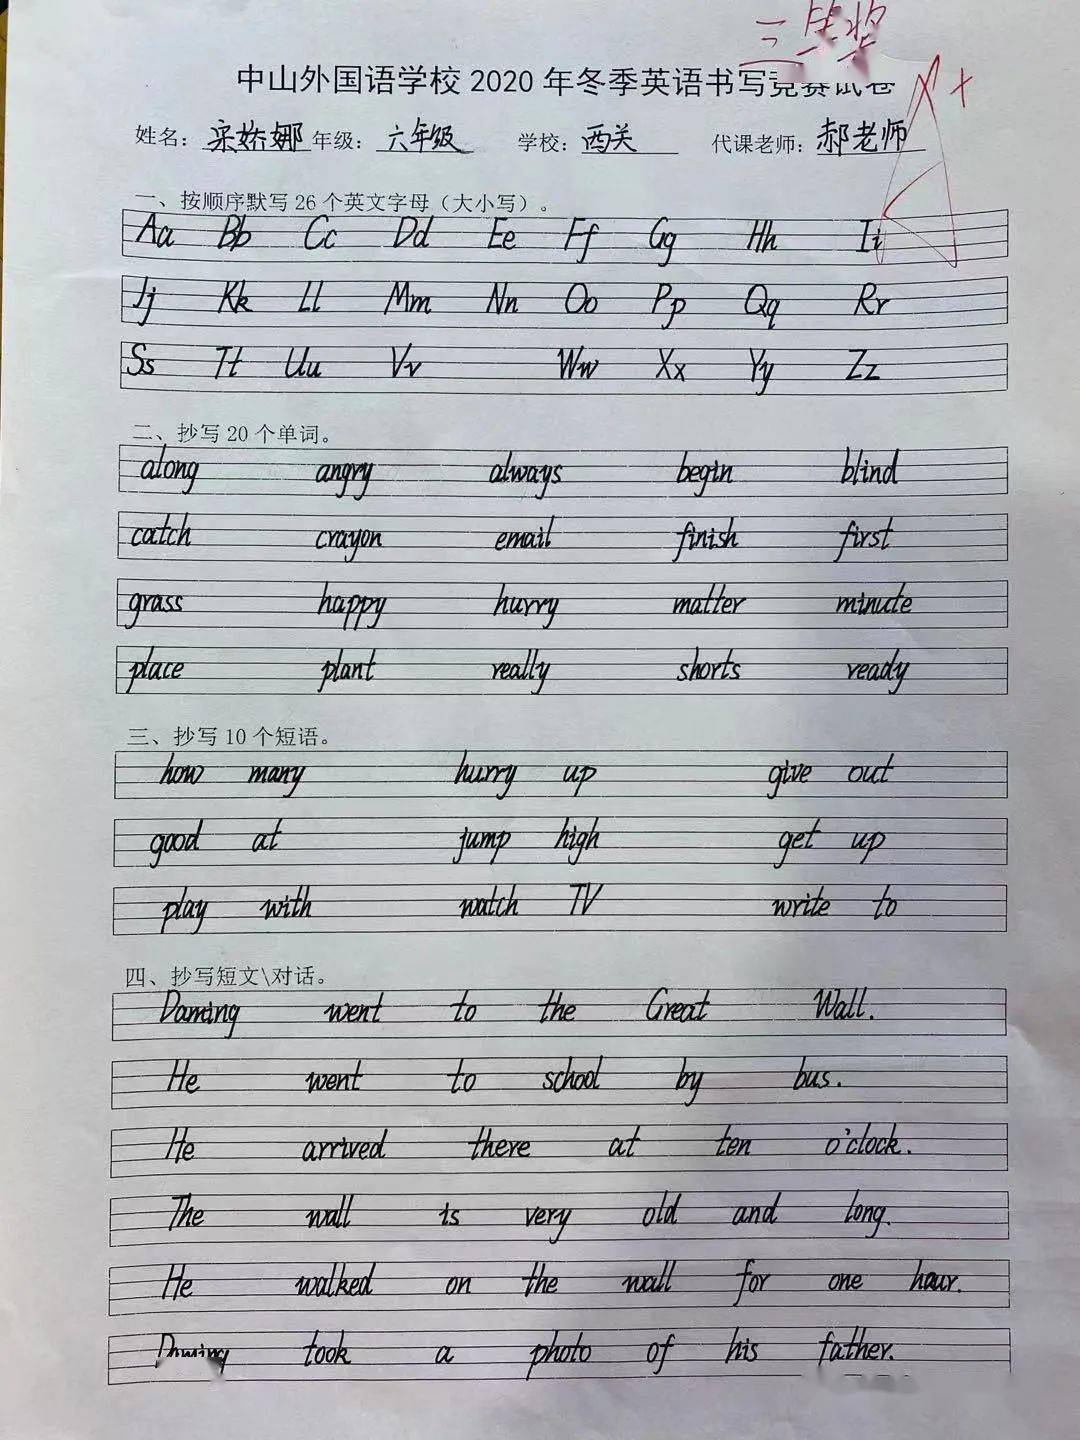 三等奖
中山外国语学校 2020 年冬季英语书写竞赛试卷
A+
姓名: 宋娇娜 年级: 六年级 学校: 西关 代课老师: 郝老师
一、按顺序默写 26 个英文字母（大小写）。
Aa Bb Cc Dd Ee Ff Gg Hh Ii
Jj Kk Ll Mm Nn Oo Pp Qq Rr
Ss Tt Uu Vv Ww Xx Yy Zz
二、抄写 20 个单词。
along angry always begin blind
catch crayon email finish first
grass happy hurry matter minute
place plant really shorts ready
三、抄写 10 个短语。
how many hurry up give out
good at jump high get up
play with watch TV write to
四、抄写短文\对话。
Daming went to the Great Wall.
He went to school by bus.
He arrived there at ten o'clock.
The wall is very old and long.
He walked on the wall for one hour.
Daming took a photo of his father.